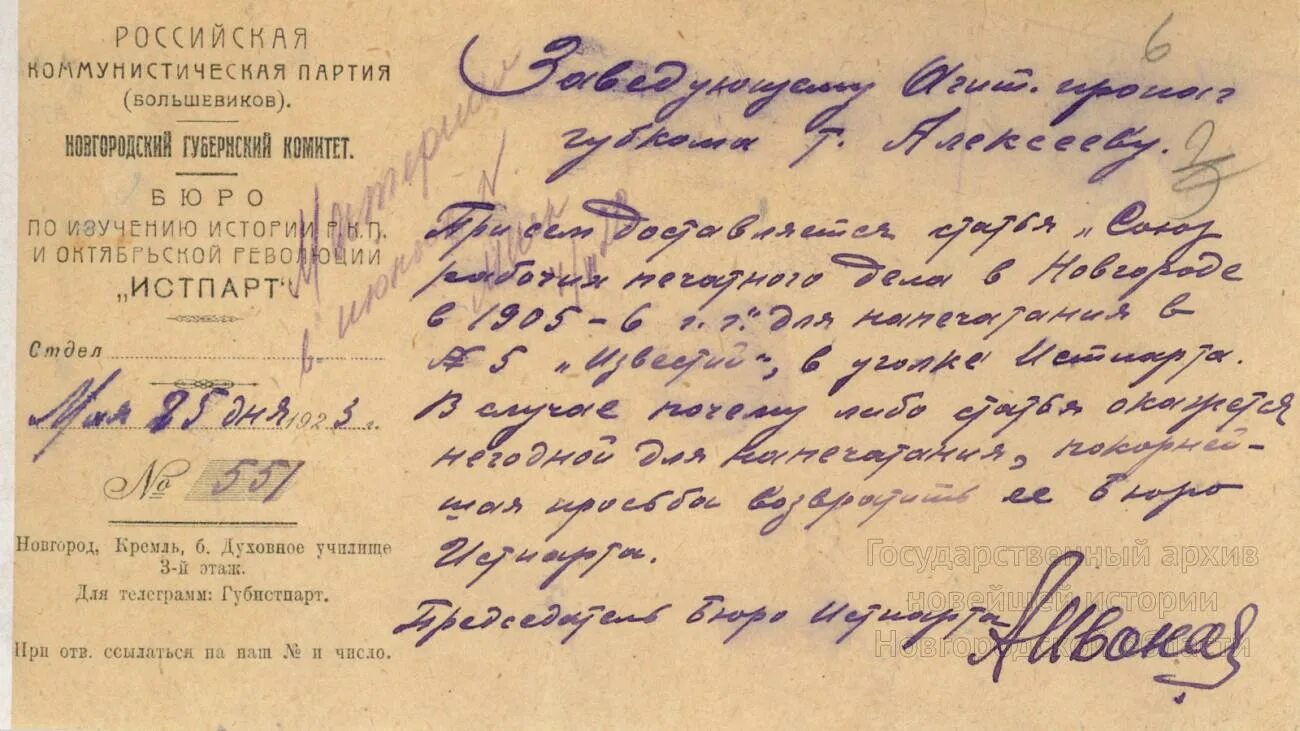 РОССИЙСКАЯ
КОММУНИСТИЧЕСКАЯ ПАРТИЯ
(БОЛЬШЕВИКОВ).
НОВГОРОДСКИЙ ГУБЕРНСКИЙ КОМИТЕТ.
БЮРО
ПО ИЗУЧЕНИЮ ИСТОРИИ Р.К.П.
И ОКТЯБРЬСКОЙ РЕВОЛЮЦИИ
„ИСТПАРТ"
Отдел
Мая 25 дня 1923 г.
№ 551
Новгород, Кремль, б. Духовное училище
3-й этаж.
Для телеграмм: Губистпарт.
При отв. ссылаться на наш № и число.
Материал
в июньск. №
6
Заведующему Агит. пропаг
губкома т. Алексееву.
При сем доставляется статья „Союз
рабочих печатного дела в Новгороде
в 1905-6 г.г." для напечатания в
№ 5 „Известий", в уголке Истпарта.
В случае почему либо статья окажется
негодной для напечатания, покорней-
шая просьба возвратить ее Бюро
Истпарта.
Председатель Бюро Истпарта
Государственный архив
новейшей истории
Новгородской области